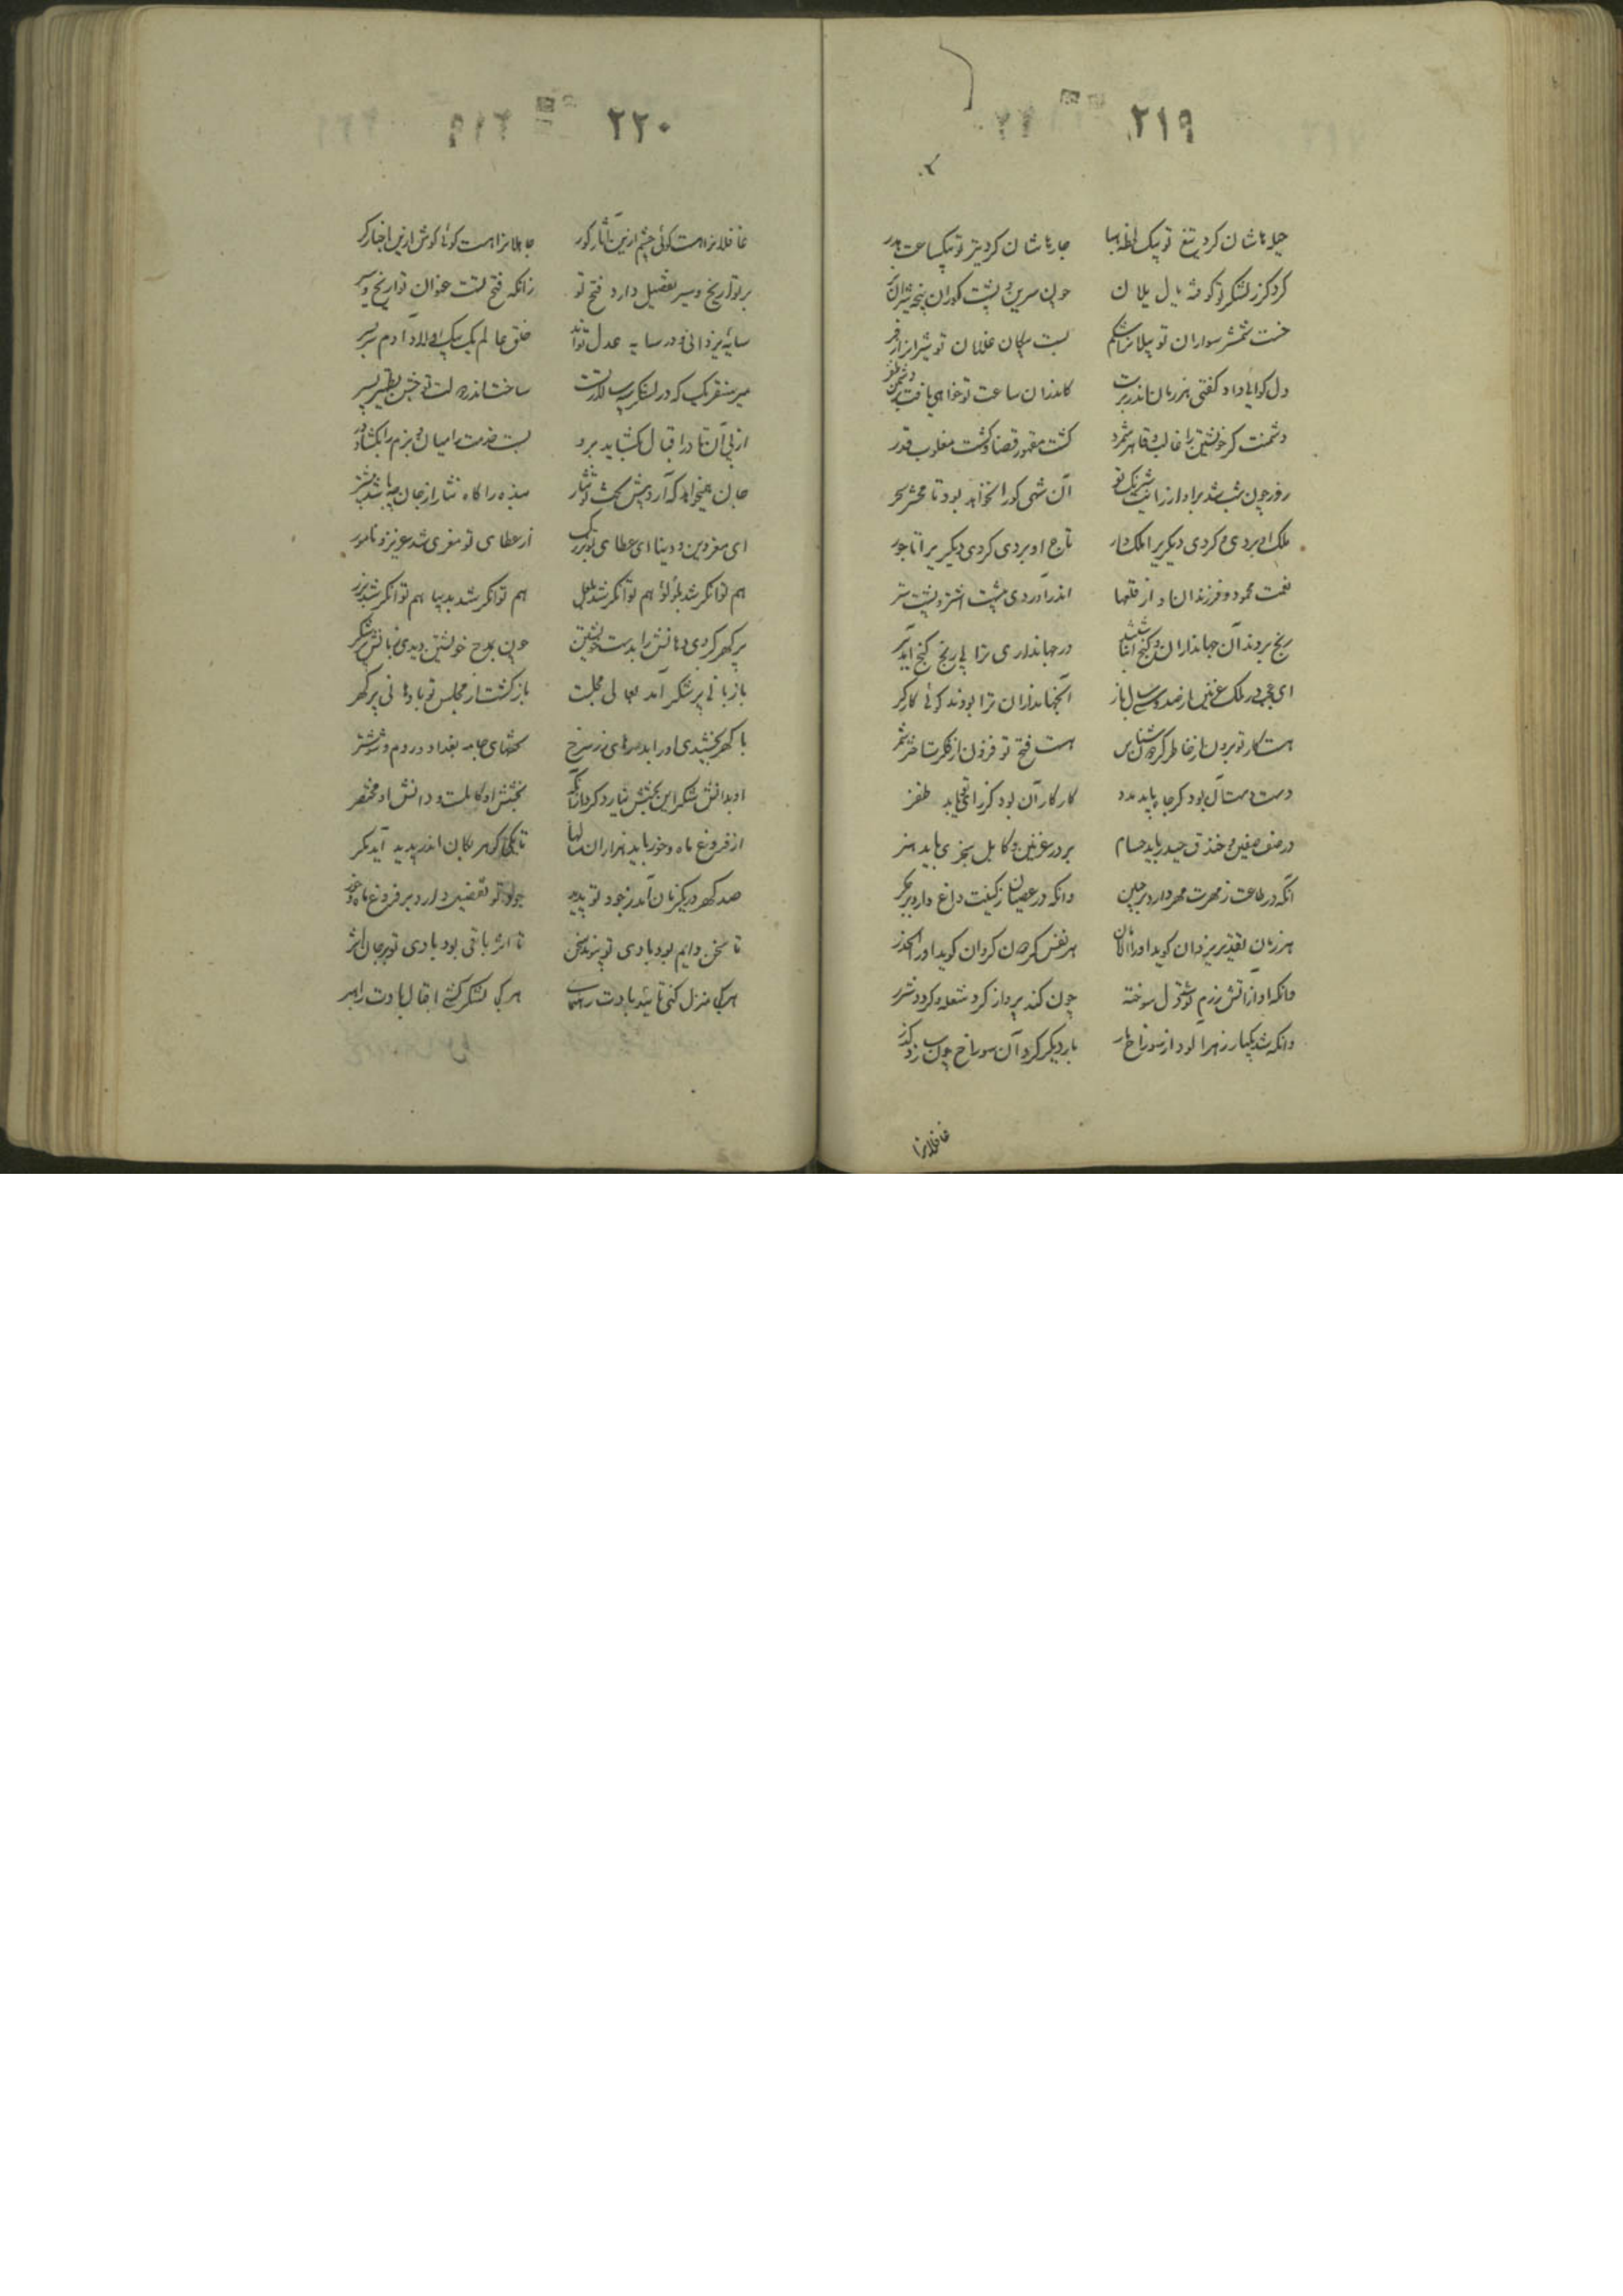 ۲۱۹
حیله‌اشان کرد تیغ تو بیک لحظه هبا جان‌هاشان کرد تیر تو بیکساعت هدر
کرد گرز لشکر تو کوفته یال یلان چون سرین و پشت گوران پنجه شیران
خست شمشیر سواران تو پیلانرا شکم بست پیکان غلامان تو شیرانرا زفر
دل گواهی داد گفتی هر زمان اندر برت کاندران ساعت تو خواهی یافت بر دشمن ظفر
دشمنت کر خویشتن را غالب و قاهر شمرد گشت مقهور قضا و گشت مغلوب قدر
روز چون شب شد برو از آن شبی کو را نخواهد بود تا محشر سحر
ملک او بردی و کردی دیگریرا ملک‌دار تاج او بردی کردی دیگریرا تاجور
نعمت محمود و فرزندان او از قلعها اندر آوردی به پشت اشتر و پشت ستر
رنج بردند آن جهانداران و گنج انباشتند در جهانداری ترا بی رنج گنج آمد ببر
ای عجب در ملک غزنین از صد و سی سال باز آنجهانداران ترا بودند گوئی کارگر
هست کار تو برون از خاطر گردن‌شناس هست فتح تو فزون از فکرت اختر شمر
دست دست آن بود کز جا بباید مدد کار کار آن بود کز راستی یابد ظفر
در صف صفین و خندق حیدر باید حسام بر در غزنین و کابل سنجری باید هنر
آنکه در طاعت ز مهرت مهر دارد بر جبین وانکه در عصیان ز کینت داغ دارد بر جگر
هر زمان تقدیر یزدان گوید او را الامان هر نفس گردون گردان گوید او را الحذر
وانکه او از آتش رزم تو شد دل سوخته چون کند پرواز گرد شعله گرد و شرر
وانکه شد یکبار زهرآلود از سوراخ مار بار دیگر گرد آن سوراخ چون سازد گذر
غافلانرا
۲۲۰
غافلانرا هست گوئی چشم ازین آثار کور جاهلانرا هست گوئی گوش ازین اخبار کر
بر تواریخ و سیر تفضیل دارد فتح تو زانکه فتح تست عنوان تواریخ و سیر
سایه یزدانی و در سایه عدل تواند خلق عالم یک بیک اولاد آدم سر بسر
میر سنقر بک که در لشکر سپه‌سالار تست ساخت اندر دولت تو جشن بی‌نظیر
از پی آن تا در اقبال بگشاید برو بست خدمت را میان و بزم را بگشاد در
جان همیخواهد که آرد پیش تختت نثار بنده را گاه نثار از جان چه باشد بیشتر
ای معز دین و دنیا ای عطای تو بزرگ از عطای تو معزی شد عزیز و نامور
هم توانگر شد بلؤلؤ هم توانگر شد بلعل هم توانگر شد بدیبا هم توانگر شد بزر
پر گهر کردی دهانش را بدست خویشتن چون بمدح خویشتن دیدی زبانش پر شکر
با زبانی پر شکر آمد بعالی مجلست باز گشت از مجلس تو با دهانی پر گهر
با گهر بخشیدی او را بدره‌های زر سرخ تختهای جامه بغداد و روم و شوشتر
او بدانش شکر این بخشش نیارد کرد از آنک بخشش او کاملست و دانش او مختصر
از فروغ ماه و خور باید هزاران سالها تا یکی گوهر بکان اندر پدید آید مگر
صد گهر در یکزمان آمد ز جود تو پدید جود تو تفضیل دارد بر فروغ ماه و خور
تا سخن دایم بود بادی تو پیوند سخن تا اثر باقی بود بادی تو بر جان اثر
هر کجا منزل کنی تائید بادت رهنمای هر کجا لشکر کشی اقبال بادت راهبر